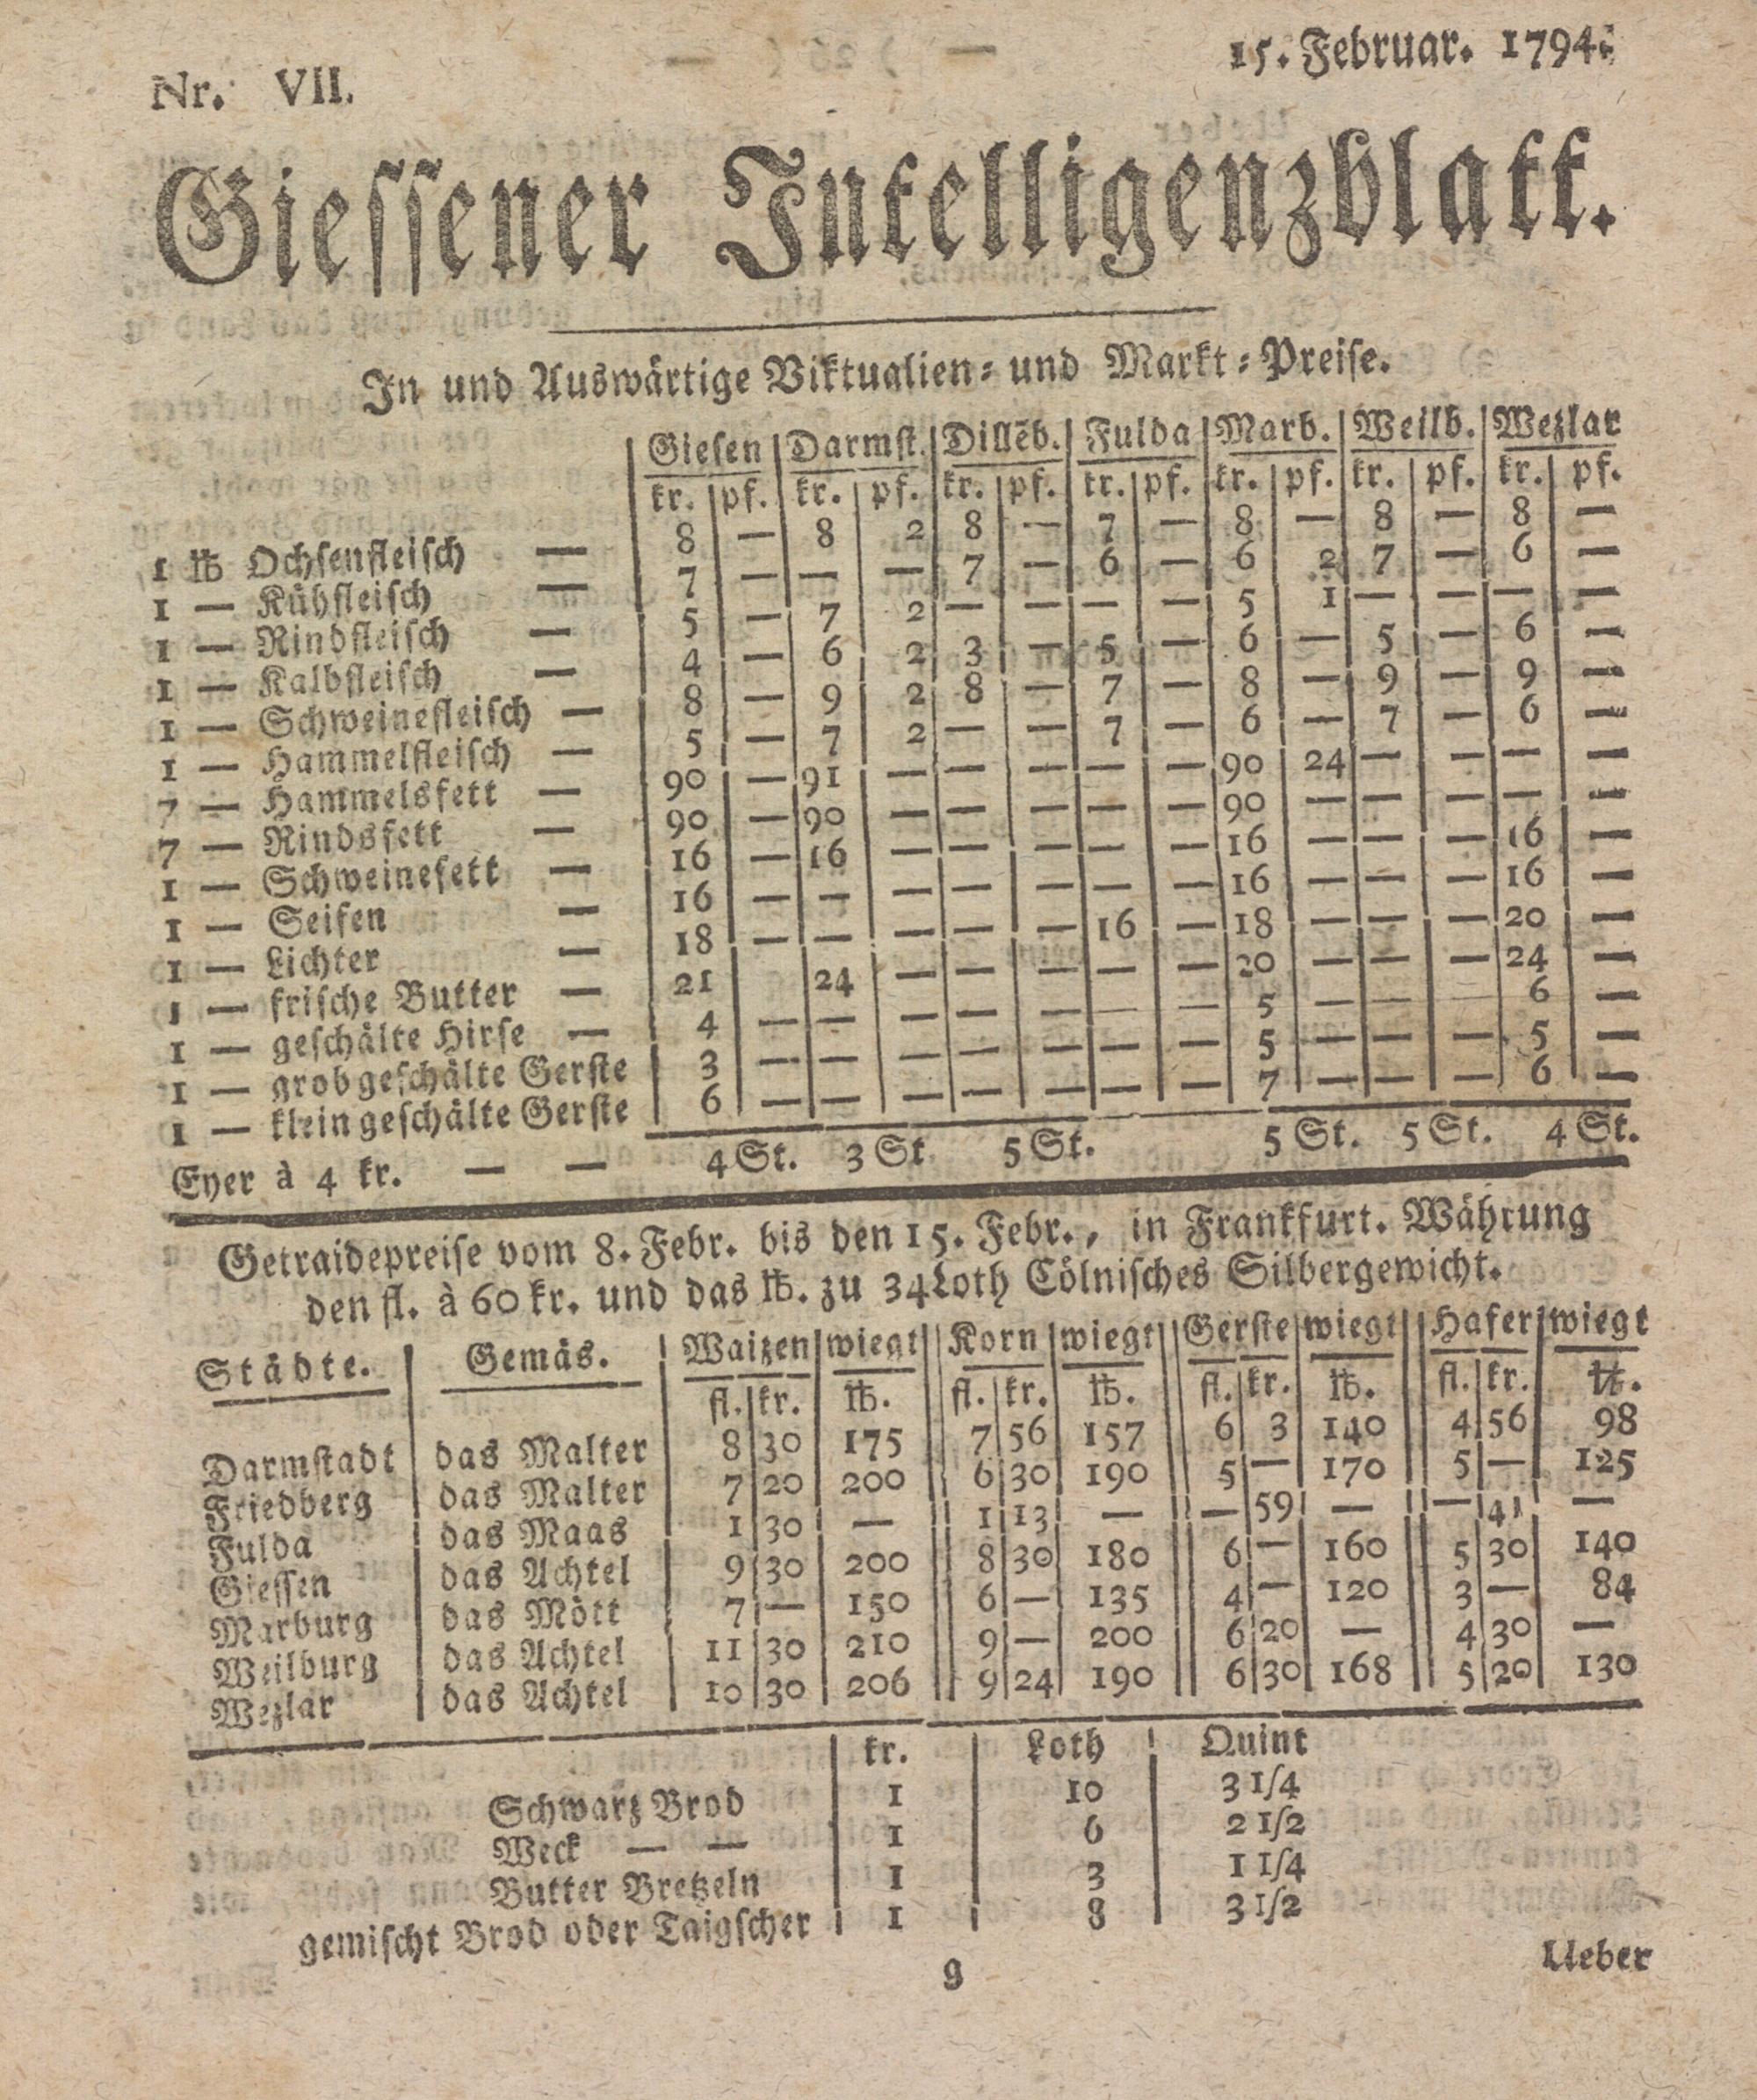 Nr. VII. 15. Februar. 1794.
Giessener Intelligenzblatt.
In und Auswärtige Viktualien- und Markt-Preise.
Giesen Darmst. Dillēb. Fulda Marb. Weilb. Wezlar
kr. pf. kr. pf. kr. pf. kr. pf. kr. pf. kr. pf. kr. pf.
1 ℔ Ochsenfleisch — 8 — 8 2 8 — 7 — 8 — 8 — 8 —
1 — Kühfleisch — 7 — — — 7 — 6 — 6 2 7 — 6 —
1 — Rindfleisch — 5 — 7 2 — — — — 5 1 — — — —
1 — Kalbfleisch — 4 — 6 2 3 — 5 — 6 — 5 — 6 —
1 — Schweinefleisch — 8 — 9 2 8 — 7 — 8 — 9 — 9 —
1 — Hammelfleisch — 5 — 7 2 — — 7 — 6 — 7 — 6 —
7 — Hammelsfett — 90 — 91 — — — — — 90 24 — — — —
7 — Rindsfett — 90 — 90 — — — — — 90 — — — — —
1 — Schweinefett — 16 — 16 — — — — — 16 — — — 16 —
1 — Seifen — 16 — — — — — — — 16 — — — 16 —
1 — Lichter — 18 — — — — — 16 — 18 — — — 20 —
1 — frische Butter — 21 24 — — — — — 20 — — — 24 —
1 — geschälte Hirse — 4 — — — — — — — 5 — — — 6 —
1 — grob geschälte Gerste 3 — — — — — — — 5 — — — 5 —
1 — klein geschälte Gerste 6 — — — — — — — 7 — — — 6 —
Eyer à 4 kr. — — 4 St. 3 St 5 St. 5 St. 5 St. 4 St.
Getraidepreise vom 8. Febr. bis den 15. Febr., in Frankfurt. Währung
den fl. à 60 kr. und das ℔. zu 34 Loth Cölnisches Silbergewicht.
Städte. Gemäs. Waizen wiegt Korn wiegt Gerste wiegt Hafer wiegt
fl. kr. ℔. fl. kr. ℔. fl. kr. ℔. fl. kr. ℔.
Darmstadt das Malter 8 30 175 7 56 157 6 3 140 4 56 98
Friedberg das Malter 7 20 200 6 30 190 5 — 170 5 — 125
Fulda das Maas 1 30 — 1 13 — — 59 — — 41 —
Giessen das Achtel 9 30 200 8 30 180 6 — 160 5 30 140
Marburg das Mött 7 — 150 6 — 135 4 — 120 3 — 84
Weilburg das Achtel 11 30 210 9 — 200 6 20 — 4 30 —
Wezlar das Achtel 10 30 206 9 24 190 6 30 168 5 20 130
kr. Loth Quint
Schwarz Brod 1 10 3 1/4
Weck — — 1 6 2 1/2
Butter Bretzeln 1 3 1 1/4
gemischt Brod oder Taigscher 1 8 3 1/2
9 Ueber